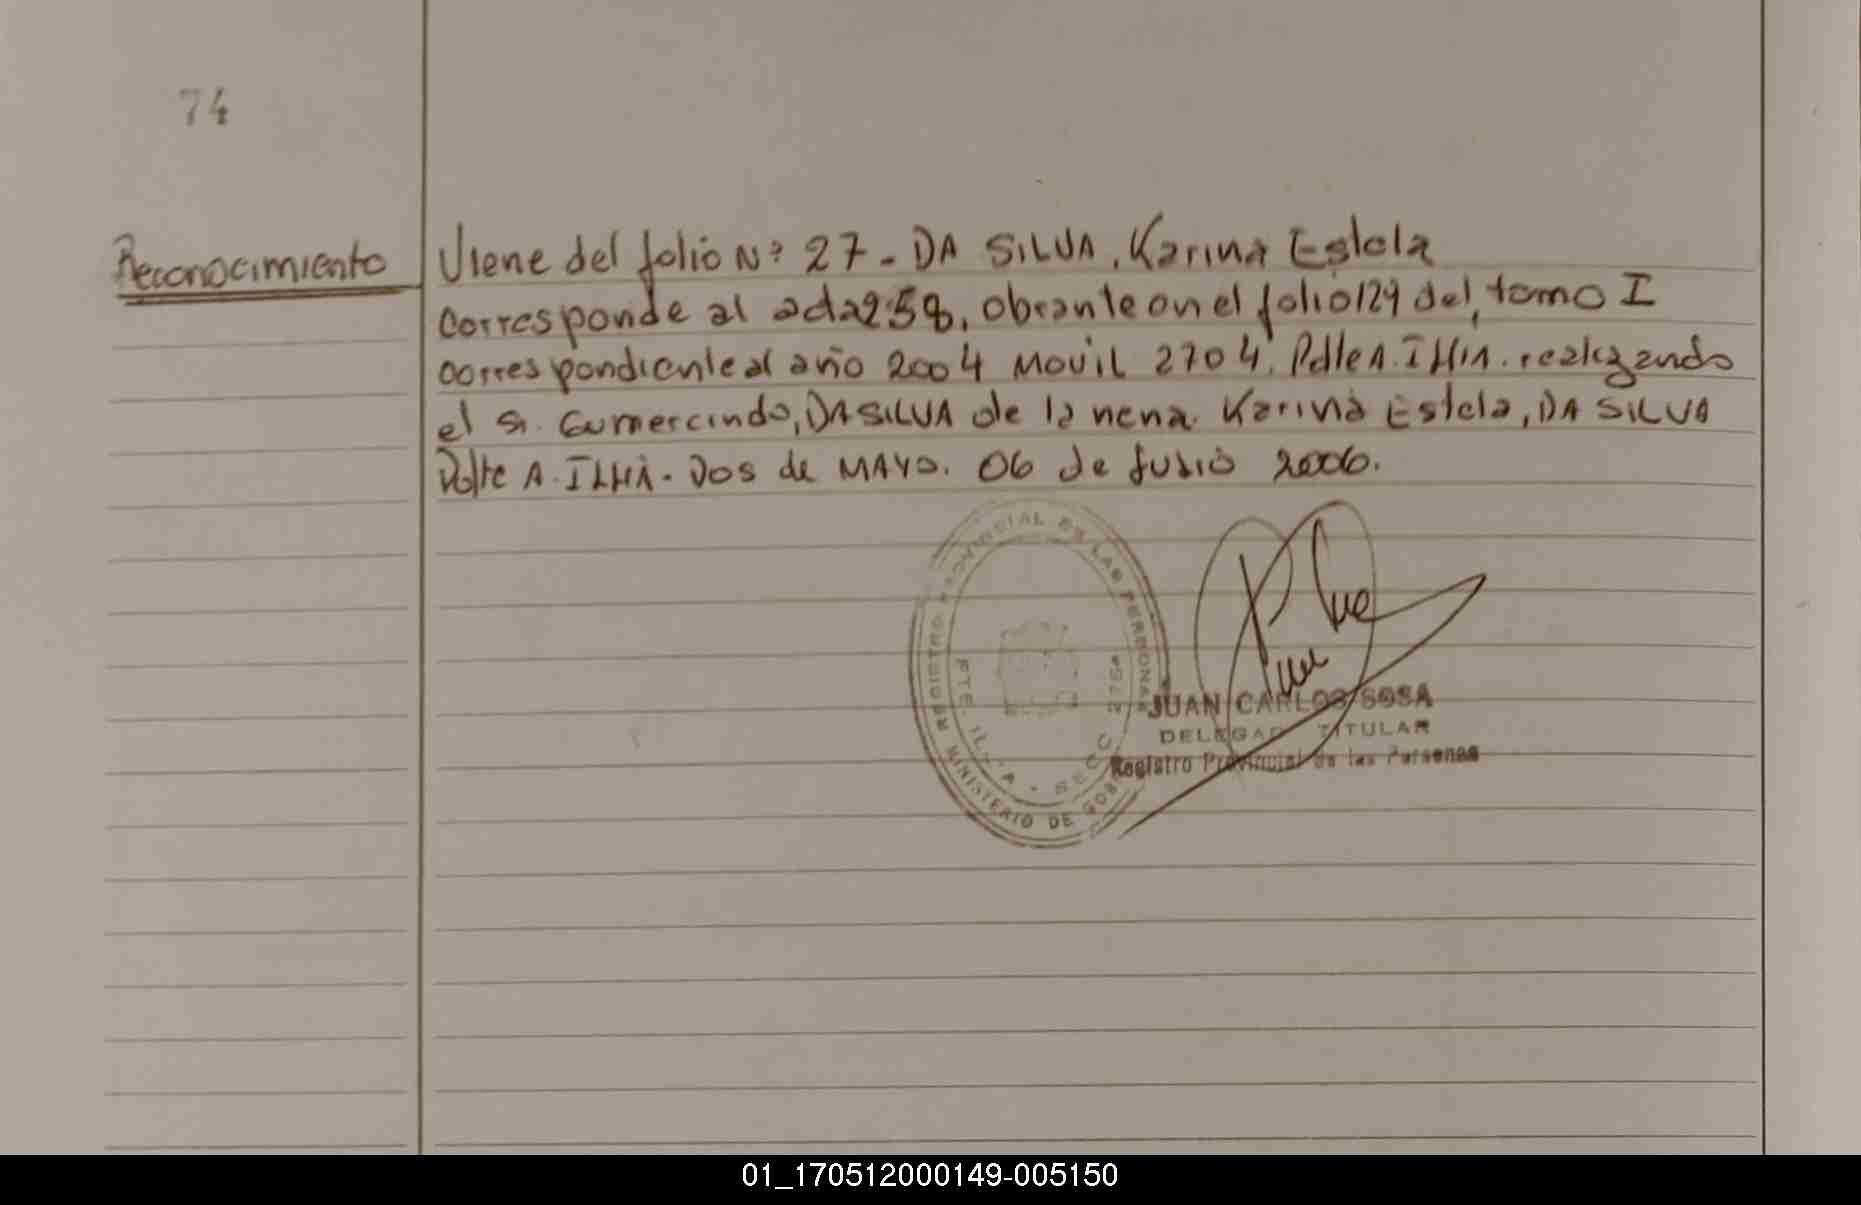 74
Reconocimiento
Viene del folio Nº 27 - DA SILVA, Karina Estela
corresponde al acta 258, obrante en el folio 129 del, tomo I
correspondiente al año 2004 Movil 2704. Pdte A. ILLIA. realizando
el Sr. Gumercindo, DA SILVA de la nena Karina Estela, DA SILVA
Pdte A. ILLIA. Dos de MAYO. 06 de Julio 2006.
REGISTRO PROVINCIAL DE LAS PERSONAS
MINISTERIO DE GOB
PTE ILLIA - SECC 275
JUAN CARLOS SOSA
DELEGADO TITULAR
Registro Provincial de las Personas
01_170512000149-005150